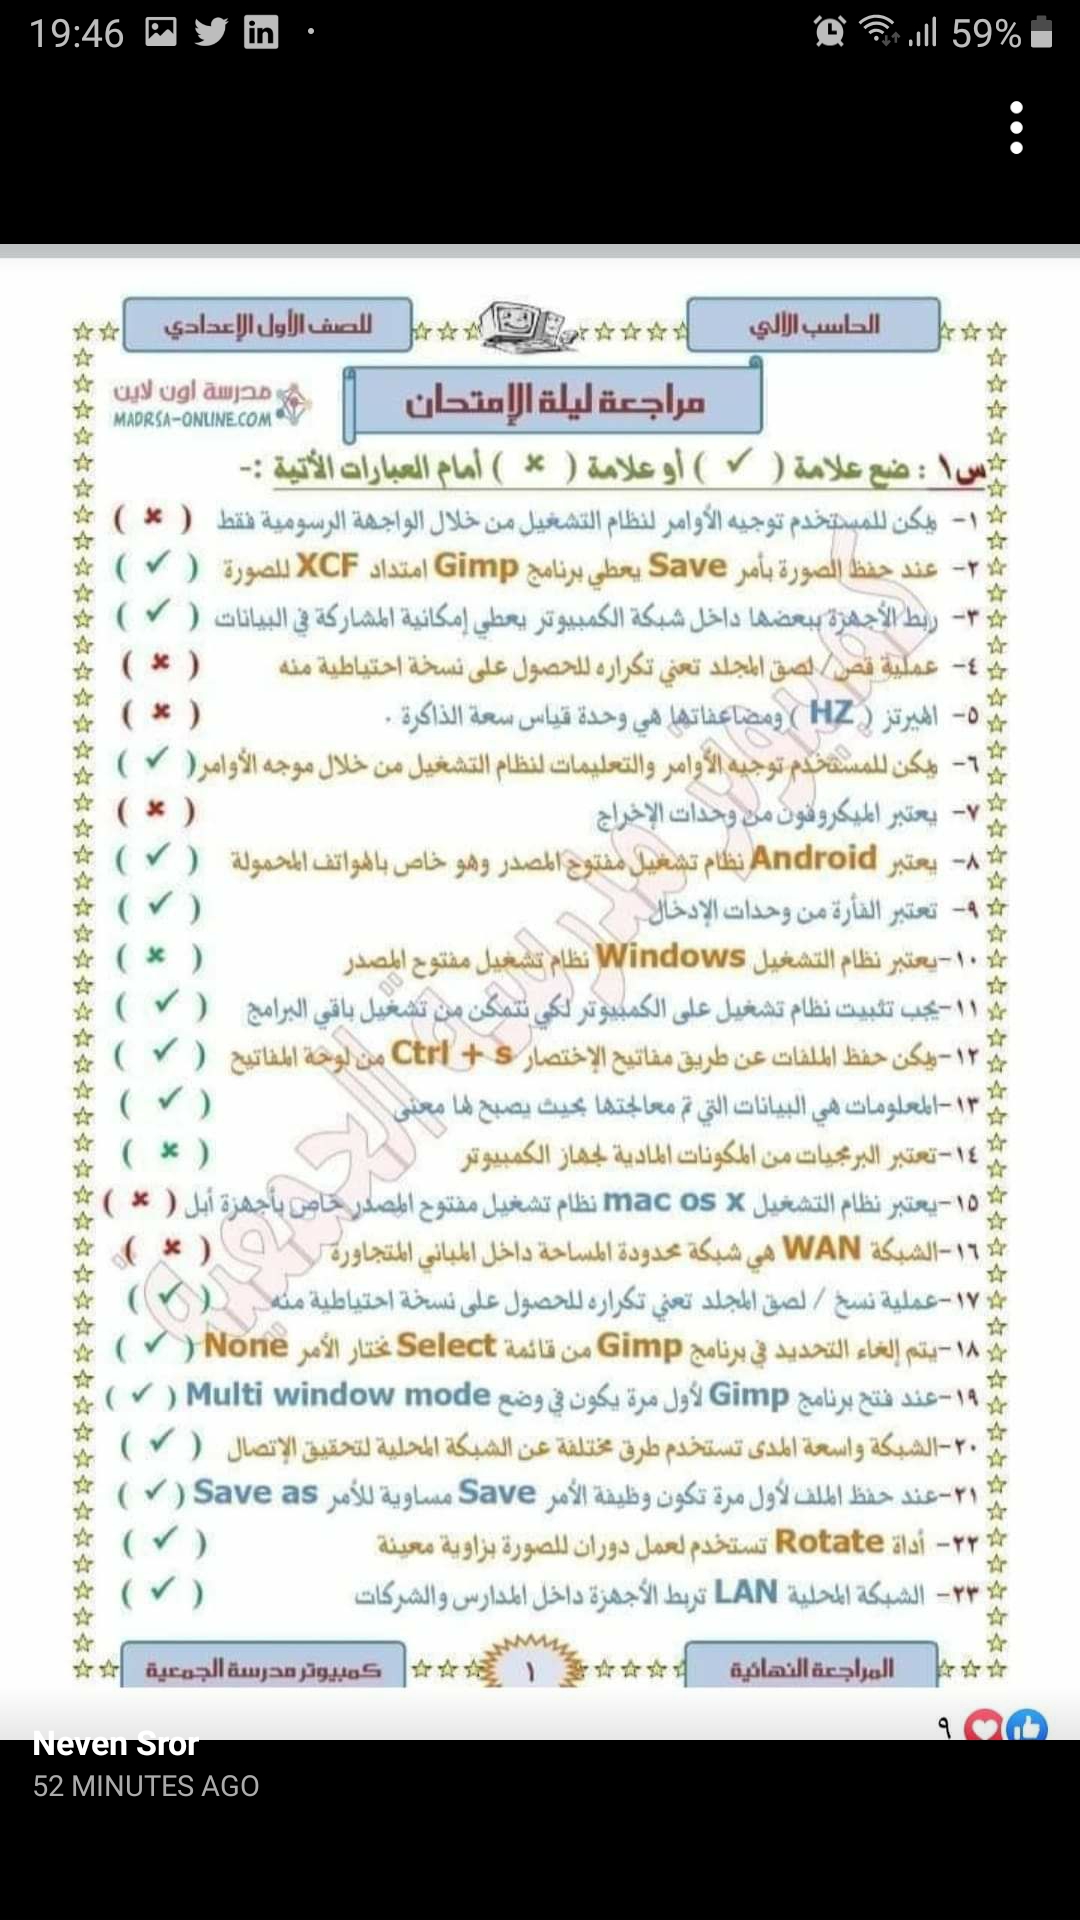 19:46
59%
الحاسب الآلي
للصف الأول الإعدادي
مراجعة ليلة الإمتحان
مدرسة اون لاين
MADRSA-ONLINE.COM
س١ : ضع علامة ( ✓ ) أو علامة ( × ) أمام العبارات الأتية :-
١- يمكن للمستخدم توجيه الأوامر لنظام التشغيل من خلال الواجهة الرسومية فقط ( × )
٢- عند حفظ الصورة بأمر Save يعطي برنامج Gimp امتداد XCF للصورة ( ✓ )
٣- ربط الأجهزة ببعضها داخل شبكة الكمبيوتر يعطي إمكانية المشاركة في البيانات ( ✓ )
٤- عملية قص / لصق المجلد تعني تكراره للحصول على نسخة احتياطية منه ( × )
٥- الهيرتز ( HZ ) ومضاعفاتها هي وحدة قياس سعة الذاكرة . ( × )
٦- يمكن للمستخدم توجيه الأوامر والتعليمات لنظام التشغيل من خلال موجه الأوامر ( ✓ )
٧- يعتبر الميكروفون من وحدات الإخراج ( × )
٨- يعتبر Android نظام تشغيل مفتوح المصدر وهو خاص بالهواتف المحمولة ( ✓ )
٩- تعتبر الفأرة من وحدات الإدخال ( ✓ )
١٠-يعتبر نظام التشغيل Windows نظام تشغيل مفتوح المصدر ( × )
١١-يجب تثبيت نظام تشغيل على الكمبيوتر لكي نتمكن من تشغيل باقي البرامج ( ✓ )
١٢-يمكن حفظ الملفات عن طريق مفاتيح الإختصار Ctrl + s من لوحة المفاتيح ( ✓ )
١٣-المعلومات هي البيانات التي تم معالجتها بحيث يصبح لها معنى ( ✓ )
١٤-تعتبر البرمجيات من المكونات المادية لجهاز الكمبيوتر ( × )
١٥-يعتبر نظام التشغيل mac os x نظام تشغيل مفتوح المصدر خاص بأجهزة أبل ( × )
١٦-الشبكة WAN هي شبكة محدودة المساحة داخل المباني المتجاورة ( × )
١٧-عملية نسخ / لصق المجلد تعني تكراره للحصول على نسخة احتياطية منه ( ✓ )
١٨-يتم إلغاء التحديد في برنامج Gimp من قائمة Select نختار الأمر None ( ✓ )
١٩-عند فتح برنامج Gimp لأول مرة يكون في وضع Multi window mode ( ✓ )
٢٠-الشبكة واسعة المدى تستخدم طرق مختلفة عن الشبكة المحلية لتحقيق الإتصال ( ✓ )
٢١-عند حفظ الملف لأول مرة تكون وظيفة الأمر Save مساوية للأمر Save as ( ✓ )
٢٢- أداة Rotate تستخدم لعمل دوران للصورة بزاوية معينة ( ✓ )
٢٣- الشبكة المحلية LAN تربط الأجهزة داخل المدارس والشركات ( ✓ )
كمبيوتر مدرسة الجمعية
المراجعة النهائية
١
كمبيوتر مدرسة الجمعية
٩
Neven Sror
52 MINUTES AGO